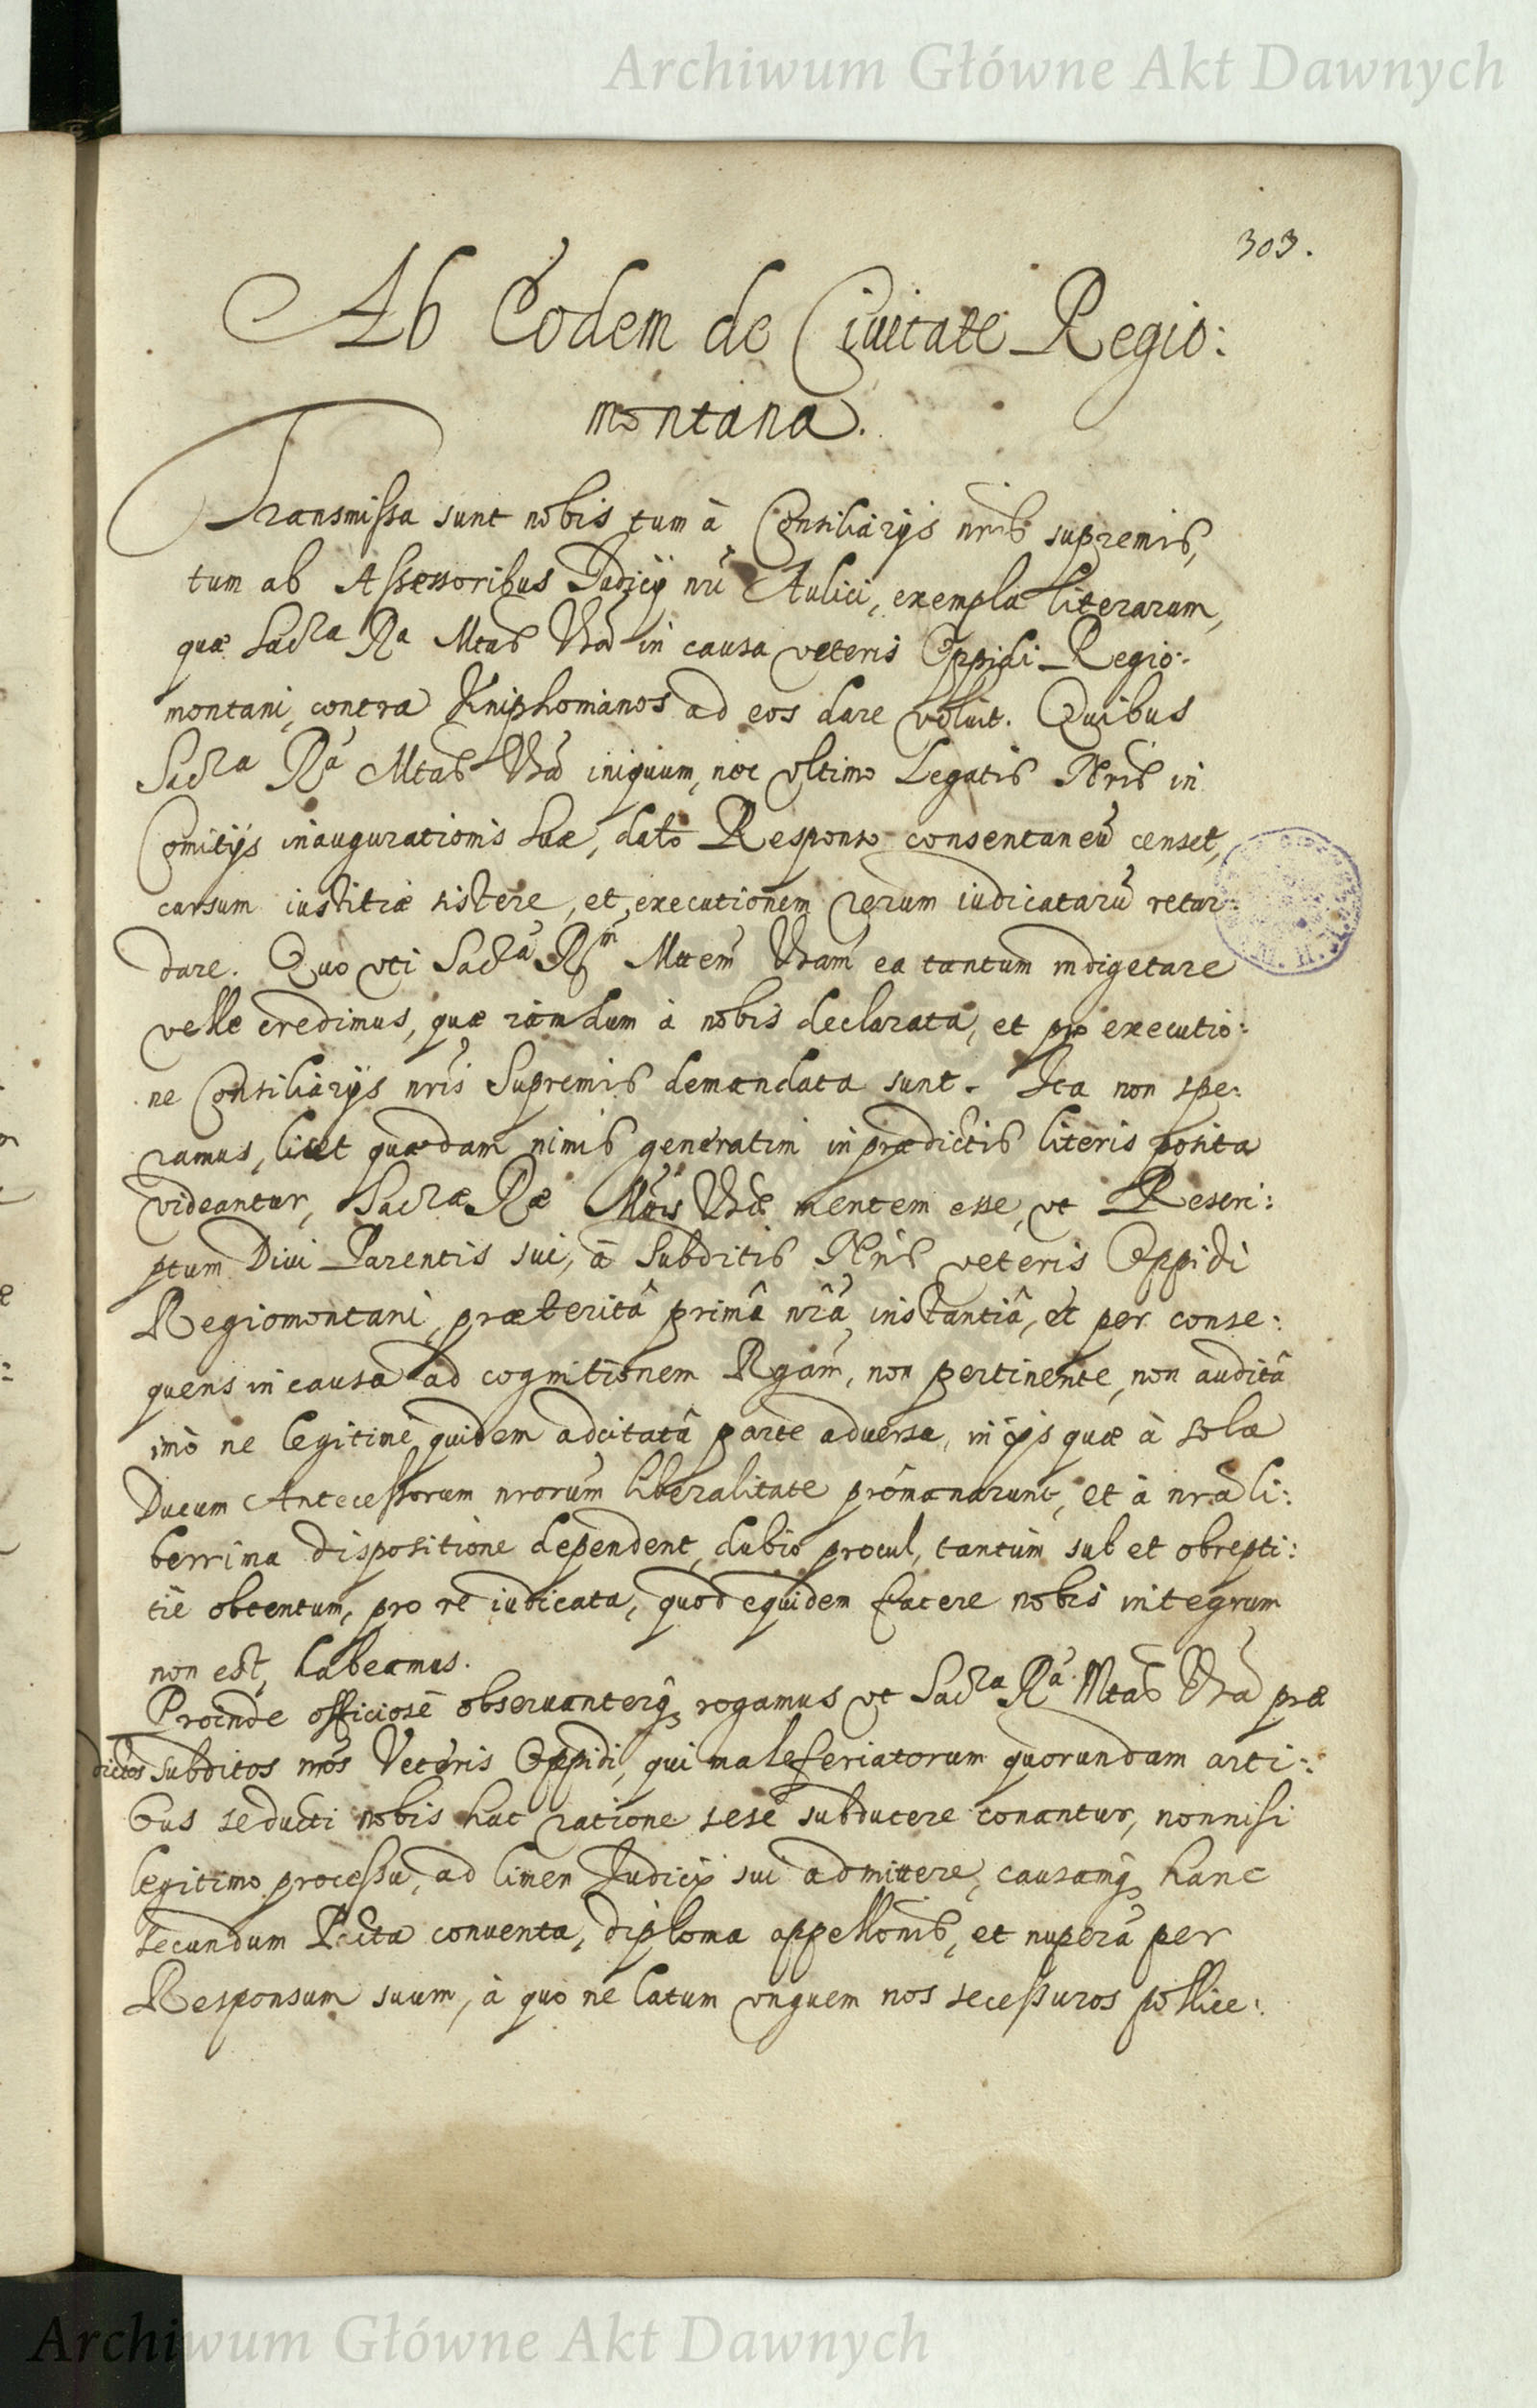 Archiwum Główne Akt Dawnych
303.
Ab Eodem de Ciuitate Regio:
montana.
Transmissa sunt nobis tum à Consiliarijs nris supremis,
tum ab Assessoribus Judicij nri Aulici, exempla literarum,
quæ Sacra Ra Mtas Vra in causa veteris Oppidi Regio:
montani, contra Kniphomanos ad eos dare voluit. Quibus
Sacra Ra Mtas Vra iniquum, nec vltimo Legatis Nris in
Comitijs inaugurationis suæ, dato Responso consentaneū censet,
cursum iustitiæ sistere, et executionem rerum iudicatarū retar:
dare. Quo vti Sacrā Rm Mttem Vram ea tantum indigetare
velle credimus, quæ iamdum à nobis declarata, et pro executio:
ne Consiliarijs nris Supremis demandata sunt. Ita non spe:
ramus, licet quædam nimis generatim in prædictis literis posita
videantur, Sacræ Ræ Mttis Vræ mentem esse, vt Rescri:
ptum Diui Parentis sui, à Subditis Nris veteris Oppidi
Regiomontani, præteritâ primâ nrâ instantiâ, et per conse:
quens in causa ad cognitionem Rgam, non pertinente, non auditâ
imò ne legitimè quidem adcitatâ parte aduersa, in ijs quæ à sola
Ducum Antecessorum nrorum liberalitate promanarunt, et à nra li:
berrima dispositione dependent, dubio procul, tantum sub et obrepti:
tiè obtentum, pro re iudicata, quod equidem facere nobis integrum
non est, habeamus.
Proinde officiosè obseruanterq rogamus vt Sacra Ra Mtas Vra præ
dictos subditos nros Veteris Oppidi, qui maleferiatorum quorundam arti:
bus seducti nobis hac ratione sese subducere conantur, nonnisi
legitimo processu, ad limen Judicij sui admittere, causamq hanc
secundum Pacta conuenta, diploma appellonis, et nuperū per
Responsum suum, à quo ne latum vnguem nos secessuros pollice:
Archiwum Główne Akt Dawnych